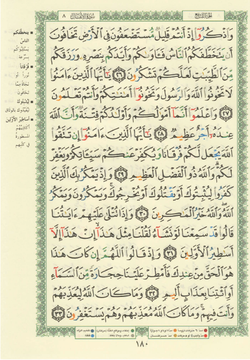 وَٱذۡكُرُوٓاْ إِذۡ أَنتُمۡ قَلِيلٞ مُّسۡتَضۡعَفُونَ فِي ٱلۡأَرۡضِ تَخَافُونَ
أَن يَتَخَطَّفَكُمُ ٱلنَّاسُ فَـَٔاوَىٰكُمۡ وَأَيَّدَكُم بِنَصۡرِهِۦ وَرَزَقَكُم
مِّنَ ٱلطَّيِّبَٰتِ لَعَلَّكُمۡ تَشۡكُرُونَ ٢٦ يَٰٓأَيُّهَا ٱلَّذِينَ ءَامَنُواْ
لَا تَخُونُواْ ٱللَّهَ وَٱلرَّسُولَ وَتَخُونُوٓاْ أَمَٰنَٰتِكُمۡ وَأَنتُمۡ تَعۡلَمُونَ
٢٧ وَٱعۡلَمُوٓاْ أَنَّمَآ أَمۡوَٰلُكُمۡ وَأَوۡلَٰدُكُمۡ فِتۡنَةٞ وَأَنَّ ٱللَّهَ
عِندَهُۥٓ أَجۡرٌ عَظِيمٞ ٢٨ يَٰٓأَيُّهَا ٱلَّذِينَ ءَامَنُوٓاْ إِن تَتَّقُواْ
ٱللَّهَ يَجۡعَل لَّكُمۡ فُرۡقَانٗا وَيُكَفِّرۡ عَنكُمۡ سَيِّـَٔاتِكُمۡ وَيَغۡفِرۡ
لَكُمۡۗ وَٱللَّهُ ذُو ٱلۡفَضۡلِ ٱلۡعَظِيمِ ٢٩ وَإِذۡ يَمۡكُرُ بِكَ ٱلَّذِينَ
كَفَرُواْ لِيُثۡبِتُوكَ أَوۡ يَقۡتُلُوكَ أَوۡ يُخۡرِجُوكَۚ وَيَمۡكُرُونَ وَيَمۡكُرُ
ٱللَّهُۖ وَٱللَّهُ خَيۡرُ ٱلۡمَٰكِرِينَ ٣٠ وَإِذَا تُتۡلَىٰ عَلَيۡهِمۡ ءَايَٰتُنَا
قَالُواْ قَدۡ سَمِعۡنَا لَوۡ نَشَآءُ لَقُلۡنَا مِثۡلَ هَٰذَآ إِنۡ هَٰذَآ إِلَّآ
أَسَٰطِيرُ ٱلۡأَوَّلِينَ ٣١ وَإِذۡ قَالُواْ ٱللَّهُمَّ إِن كَانَ هَٰذَا
هُوَ ٱلۡحَقَّ مِنۡ عِندِكَ فَأَمۡطِرۡ عَلَيۡنَا حِجَارَةٗ مِّنَ ٱلسَّمَآءِ
أَوِ ٱئۡتِنَا بِعَذَابٍ أَلِيمٖ ٣٢ وَمَا كَانَ ٱللَّهُ لِيُعَذِّبَهُمۡ
وَأَنتَ فِيهِمۡۚ وَمَا كَانَ ٱللَّهُ مُعَذِّبَهُمۡ وَهُمۡ يَسۡتَغۡفِرُونَ ٣٣
١٨٠